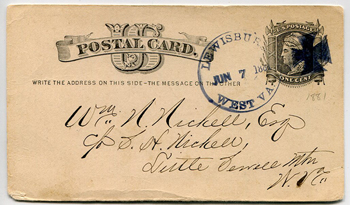 POSTAL CARD.
US
WRITE THE ADDRESS ON THIS SIDE-THE MESSAGE ON THE OTHER
LEWISBUR
JUN 7
WEST VA.
ONE CENT
1881
Wm. N. Nickell, Esq
c/o S. H. Nickell,
Little Sewell Mtn
W. Va